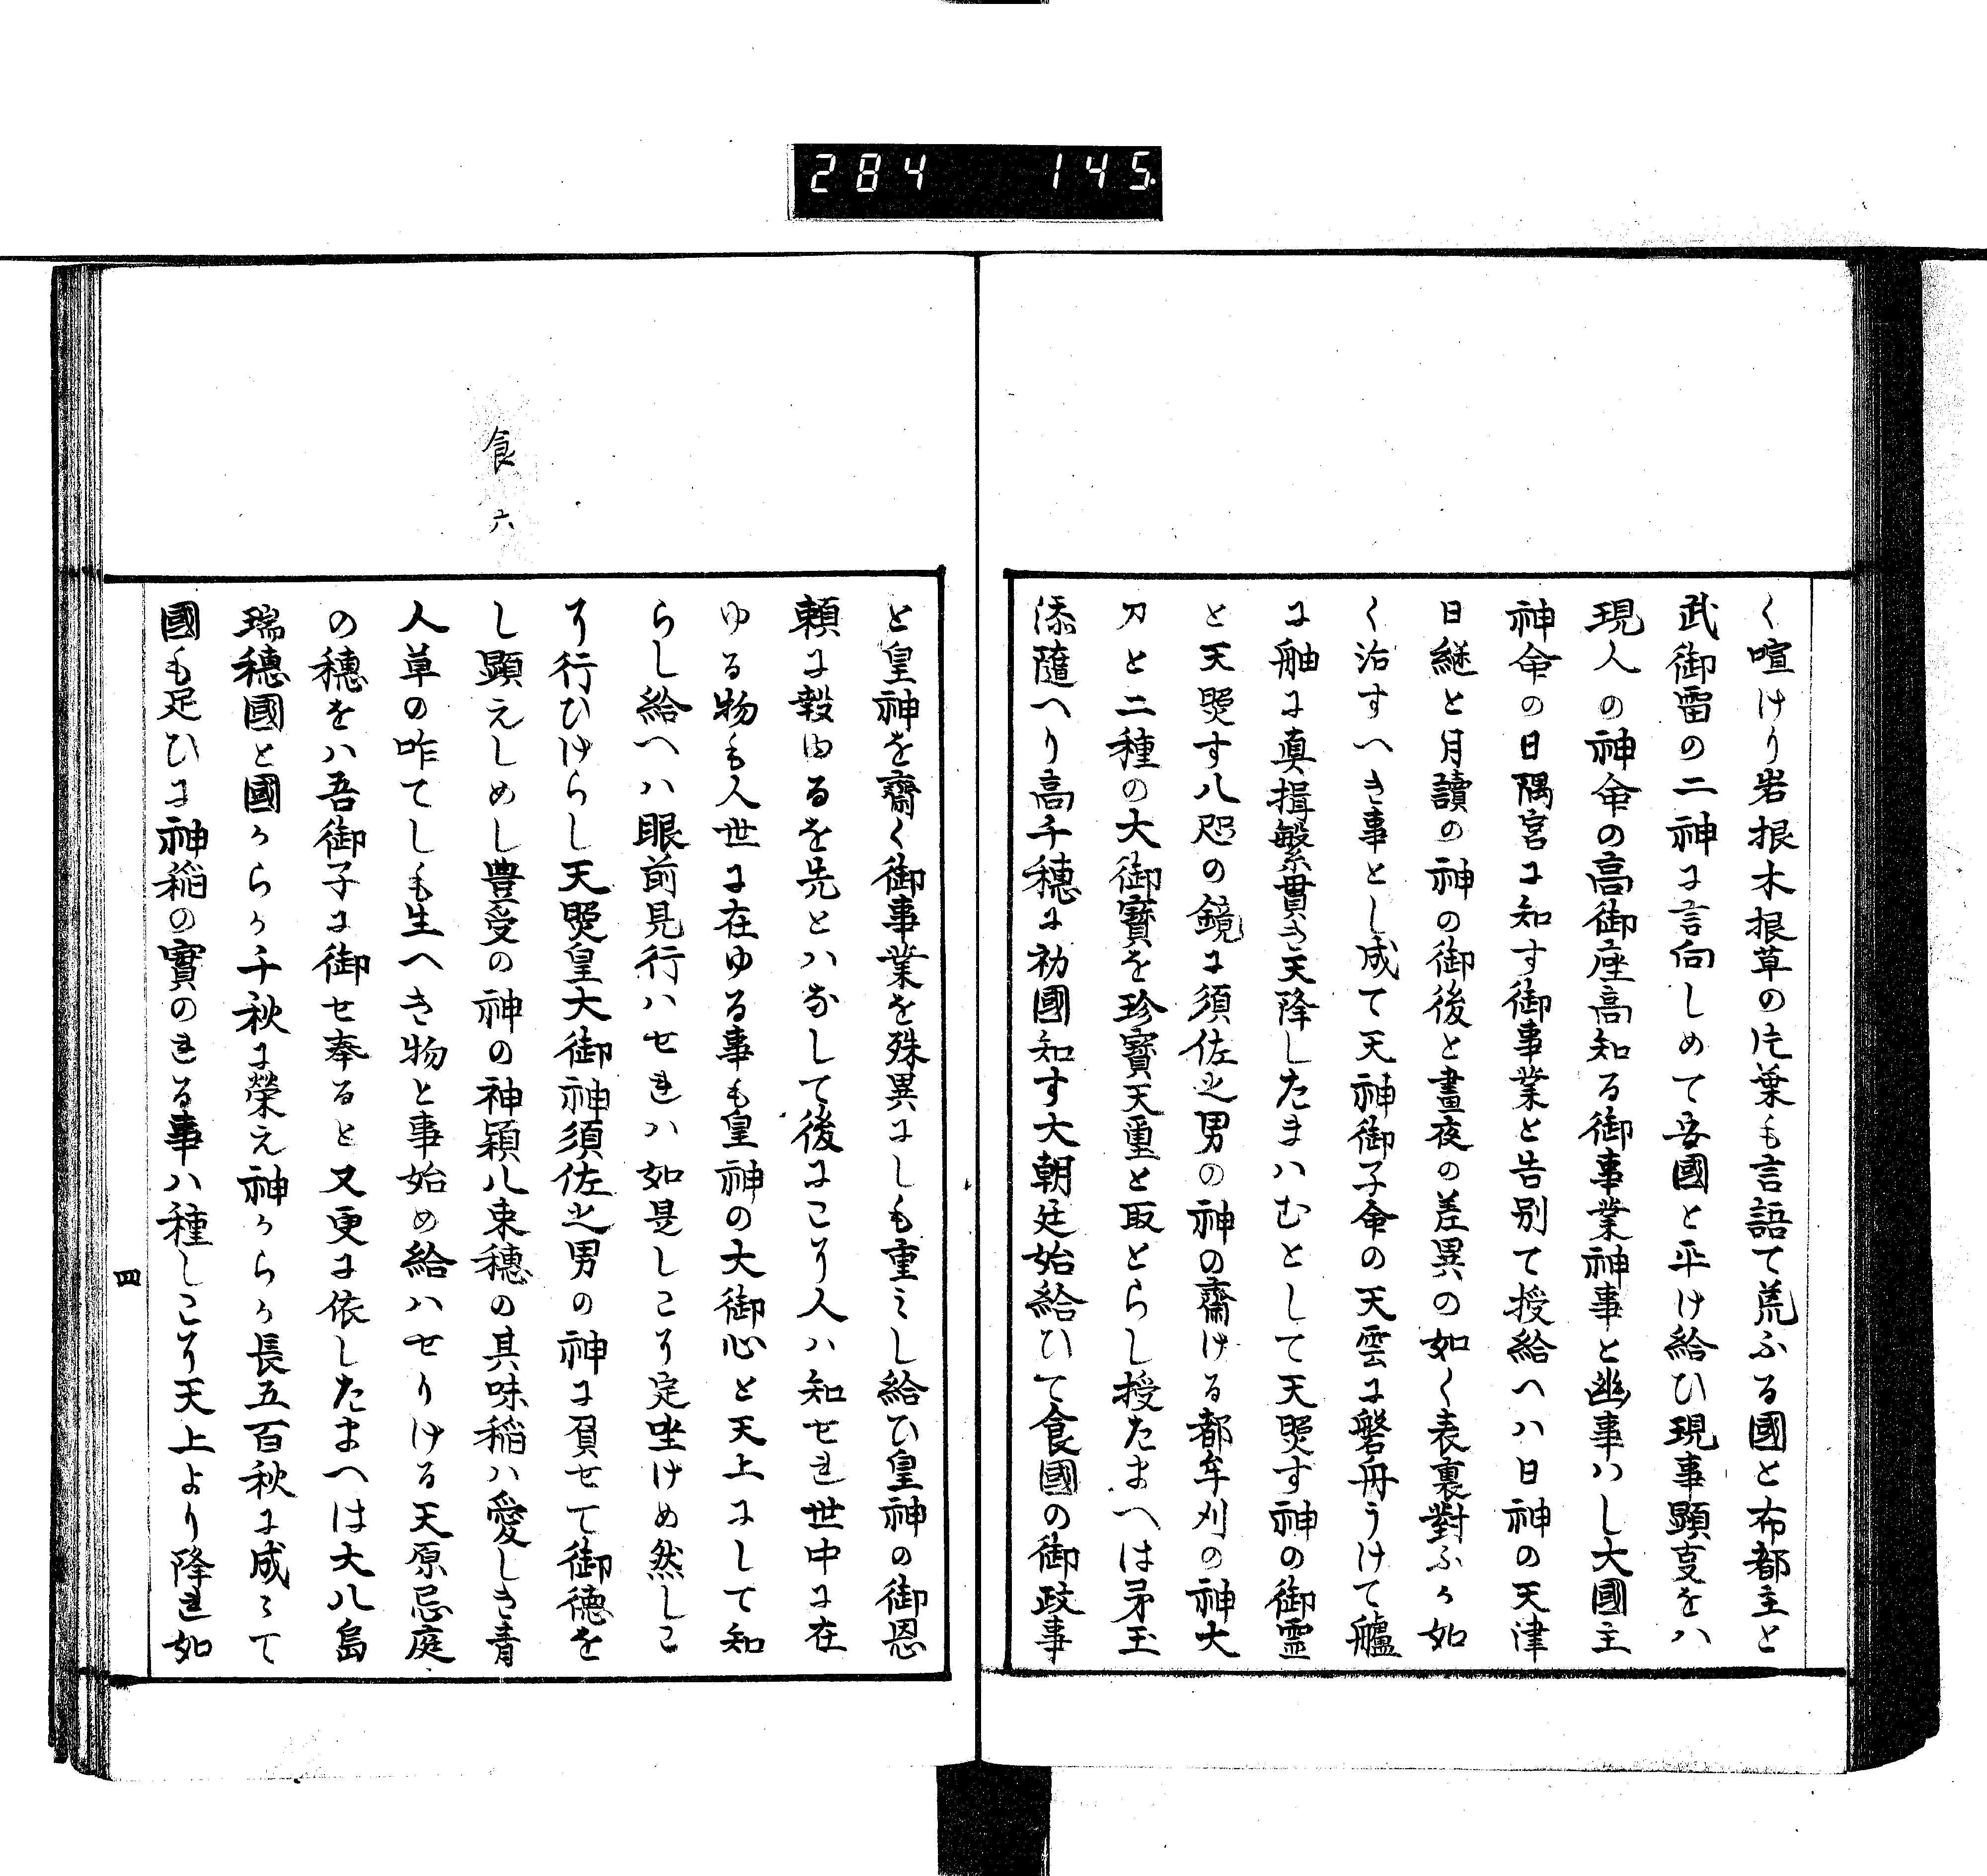 284 145
く喧けり岩根木根草の片葉も言語て荒ふる國と布都主と
武御雷の二神に言向しめて安國と平け給ひ現事顕支をハ
現人の神命の高御座高知る御事業神事と幽事ハし大國主
神命の日隅宮に知す御事業と告別て授給へハ日神の天津
日継と月讀の神の御後と晝夜の差異の如く表裏對ふか如
く治すへき事とし成て天神御子命の天雲に磐舟うけて艫
に舳に真揖繁貫き天降したまハむとして天照す神の御霊
と天照す八咫の鏡に須佐之男の神の齋ける都牟刈の神大
刀と二種の大御寳を珍寳天璽と取とらし授たまへは矛玉
添隨へり高千穂に初國知す大朝廷始給ひて食國の御政事
と皇神を齋く御事業を殊異にしも重ミし給ひ皇神の御恩
頼に穀由るを先とハなして後にこそ人ハ知せれ世中に在
ゆる物も人世に在ゆる事も皇神の大御心と天上にして知
らし給へハ眼前見行ハせれハ如是しこそ定坐けめ然しこ
そ行ひけらし天照皇大御神須佐之男の神に負せて御徳を
し顕えしめし豊受の神の神穎八束穂の其味稲ハ愛しき青
人草の咋てしも生へき物と事始め給ハせりける天原忌庭
の穂をハ吾御子に御せ奉ると又更に依したまへは大八島
瑞穂國と國からか千秋に榮え神からか長五百秋に成ミて
國も足ひに神稲の實のれる事ハ種しこそ天上より降れ如
食
六
四